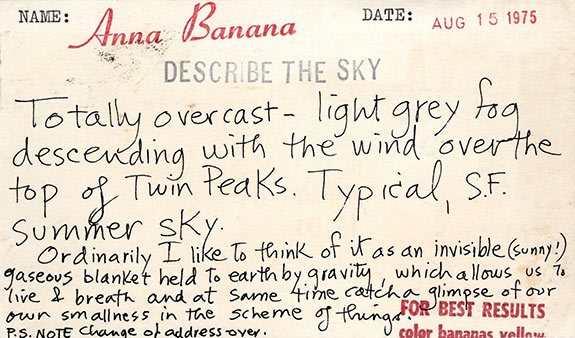 NAME: Anna Banana DATE: AUG 15 1975
DESCRIBE THE SKY
Totally overcast - light grey fog
descending with the wind over the
top of Twin Peaks. Typical, S.F.
summer sky.
Ordinarily I like to think of it as an invisible (sunny!)
gaseous blanket held to earth by gravity, which allows us to
live & breath and at same time catch a glimpse of our
own smallness in the scheme of things.
FOR BEST RESULTS
P.S. NOTE Change of address over.
color bananas yellow